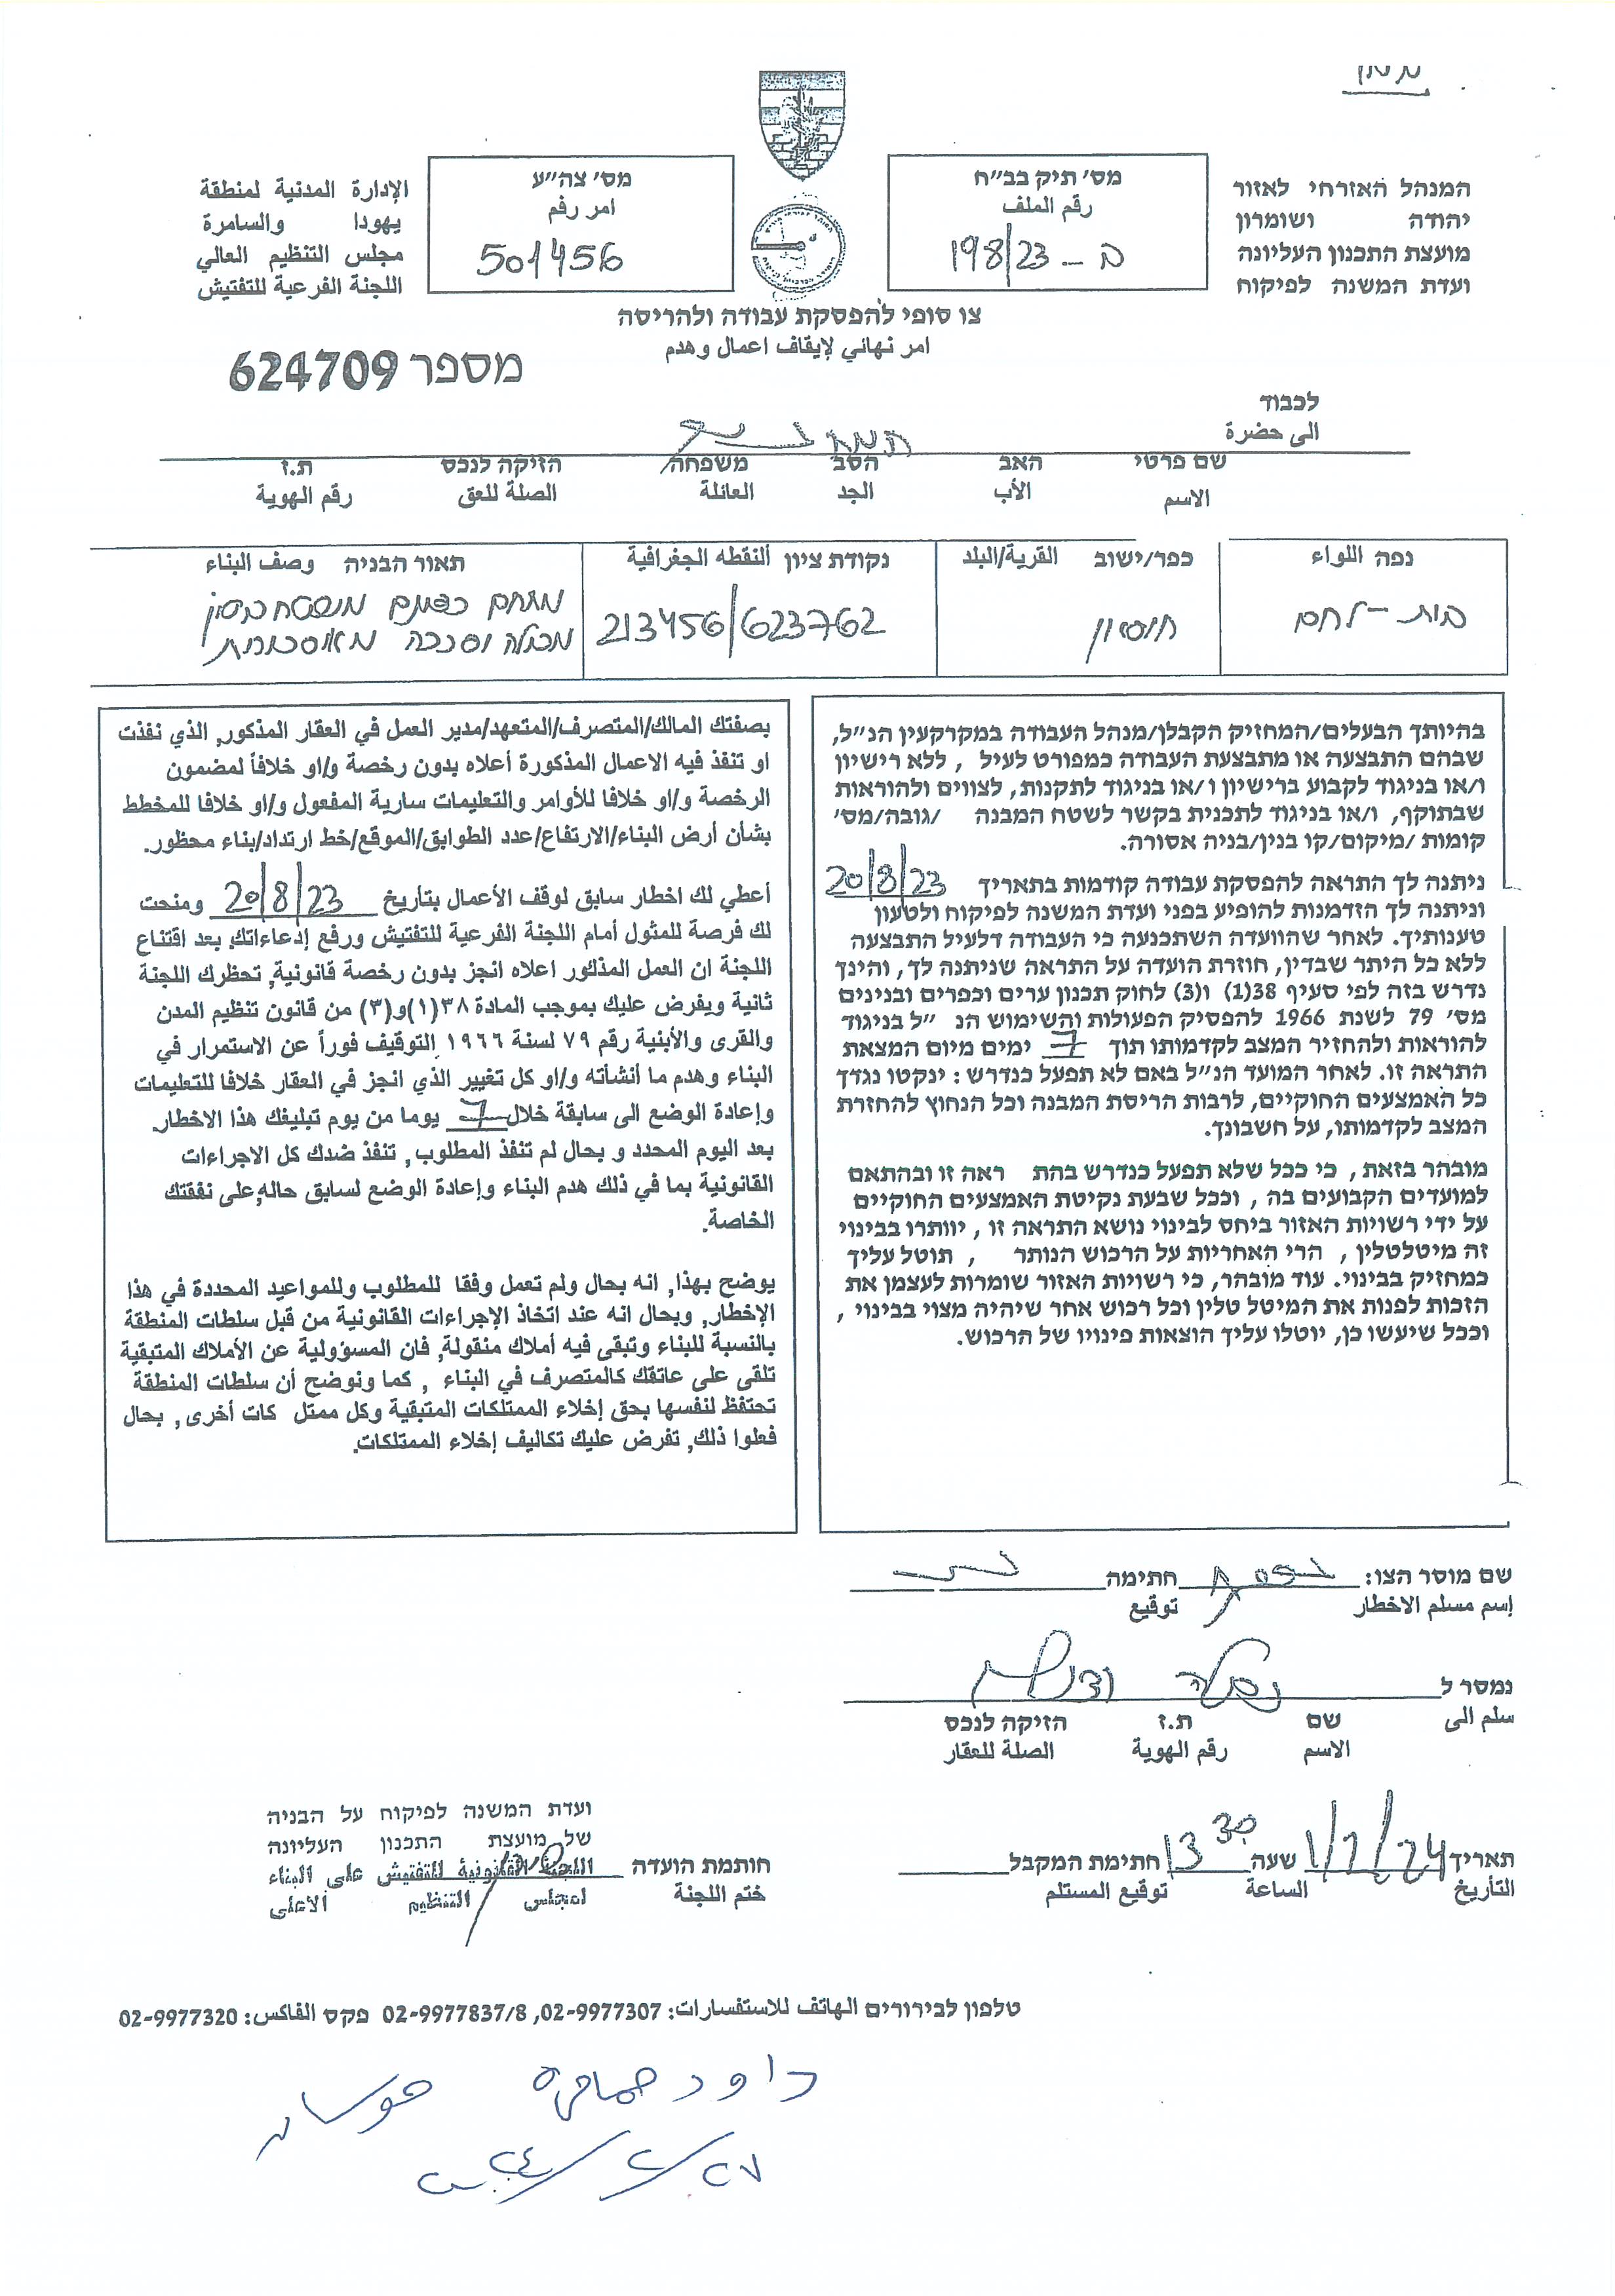 המנהל האזרחי לאזור
יהודה ושומרון
מועצת התכנון העליונה
ועדת המשנה לפיקוח
מס׳ תיק בב״ח
رقم الملف
ב - 198/23
מס׳ צה״ע
امر رقم
501456
الإدارة المدنية لمنطقة
يهودا والسامرة
مجلس التنظيم العالي
اللجنة الفرعية للتفتيش
צו סופי להפסקת עבודה ולהריסה
امر نهائي لإيقاف اعمال وهدم
מספר 624709
לכבוד
الى حضرة
שם פרטי האב הסב משפחה הזיקה לנכס ת.ז
الاسم الأب الجد العائلة الصلة للعق رقم الهوية
نفه اللواء
בית-לחם
כפר/ישוב القرية/البلد
חוסאן
נקודת ציון النقطه الجغرافية
213456/623762
תאור הבניה وصف البناء
מתחם
מכולה וסככה
בהיותך הבעלים/המחזיק הקבלן/מנהל העבודה במקרקעין הנ״ל,
שבהם התבצעה או מתבצעת העבודה כמפורט לעיל , ללא רישיון
ו/או בניגוד לקבוע ברישיון ו/או בניגוד לתקנות, לצווים ולהוראות
שבתוקף, ו/או בניגוד לתכנית בקשר לשטח המבנה /גובה/מס׳
קומות /מיקום/קו בנין/בניה אסורה.
ניתנה לך התראה להפסקת עבודה קודמות בתאריך 20/8/23
וניתנה לך הזדמנות להופיע בפני ועדת המשנה לפיקוח ולטעון
טענותיך. לאחר שהוועדה השתכנעה כי העבודה דלעיל התבצעה
ללא כל היתר שבדין, חוזרת הועדה על התראה שניתנה לך, והינך
נדרש בזה לפי סעיף 38(1) ו(3) לחוק תכנון ערים וכפרים ובנינים
מס׳ 79 לשנת 1966 להפסיק הפעולות והשימוש הנ ״ל בניגוד
להוראות ולהחזיר המצב לקדמותו תוך 7 ימים מיום המצאת
התראה זו. לאחר המועד הנ״ל באם לא תפעל כנדרש : ינקטו נגדך
כל האמצעים החוקיים, לרבות הריסת המבנה וכל הנחוץ להחזרת
המצב לקדמותו, על חשבונך.
מובהר בזאת , כי ככל שלא תפעל כנדרש בהת ראה זו ובהתאם
למועדים הקבועים בה , וככל שבעת נקיטת האמצעים החוקיים
על ידי רשויות האזור ביחס לבינוי נושא התראה זו , יוותרו בבינוי
זה מיטלטלין , הרי האחריות על הרכוש הנותר , תוטל עליך
כמחזיק בבינוי. עוד מובהר, כי רשויות האזור שומרות לעצמן את
הזכות לפנות את המיטל טלין וכל רכוש אחר שיהיה מצוי בבינוי ,
וככל שיעשו כן, יוטלו עליך הוצאות פינויו של הרכוש.
بصفتك المالك/المتصرف/المتعهد/مدير العمل في العقار المذكور, الذي نفذت
او تنفذ فيه الاعمال المذكورة أعلاه بدون رخصة و/او خلافاً لمضمون
الرخصة و/او خلافا للأوامر والتعليمات سارية المفعول و/او خلافا للمخطط
بشأن أرض البناء/الارتفاع/عدد الطوابق/الموقع/خط ارتداد/بناء محظور.
أعطي لك اخطار سابق لوقف الأعمال بتاريخ 20/8/23 ومنحت
لك فرصة للمثول أمام اللجنة الفرعية للتفتيش ورفع إدعاءاتك. بعد اقتناع
اللجنة ان العمل المذكور اعلاه انجز بدون رخصة قانونية, تحظرك اللجنة
ثانية ويفرض عليك بموجب المادة ٣٨(١)و(٣) من قانون تنظيم المدن
والقرى والأبنية رقم ٧٩ لسنة ١٩٦٦ التوقيف فوراً عن الاستمرار في
البناء وهدم ما أنشأته و/او كل تغيير الذي انجز في العقار خلافا للتعليمات
وإعادة الوضع الى سابقة خلال 7 يوما من يوم تبليغك هذا الاخطار.
بعد اليوم المحدد و بحال لم تنفذ المطلوب, تنفذ ضدك كل الاجراءات
القانونية بما في ذلك هدم البناء وإعادة الوضع لسابق حاله, على نفقتك
الخاصة.
يوضح بهذا, انه بحال ولم تعمل وفقا للمطلوب وللمواعيد المحددة في هذا
الإخطار, وبحال انه عند اتخاذ الإجراءات القانونية من قبل سلطات المنطقة
بالنسبة للبناء وتبقى فيه أملاك منقولة, فان المسؤولية عن الأملاك المتبقية
تلقى على عاتقك كالمتصرف في البناء , كما ونوضح أن سلطات المنطقة
تحتفظ لنفسها بحق إخلاء الممتلكات المتبقية وكل ممتل كات أخرى, بحال
فعلوا ذلك, تفرض عليك تكاليف إخلاء الممتلكات.
שם מוסר הצו: חתימה
إسم مسلم الاخطار توقيع
נמסר ל
سلم الى
שם ת.ז הזיקה לנכס
الاسم رقم الهوية الصلة للعقار
תאריך 1/1/24 שעה 13 30 חתימת המקבל
التأريخ الساعة توقيع المستلم
חותמת הועדה
ختم اللجنة
ועדת המשנה לפיקוח על הבניה
של מועצת התכנון העליונה
اللجنة القانونية للتفتيش على البناء
لمجلس التنظيم الاعلى
טלפון לבירורים الهاتف للاستفسارات: 02-9977307, 02-9977837/8 פקס الفاكس: 02-9977320
داود حمامره حوسان